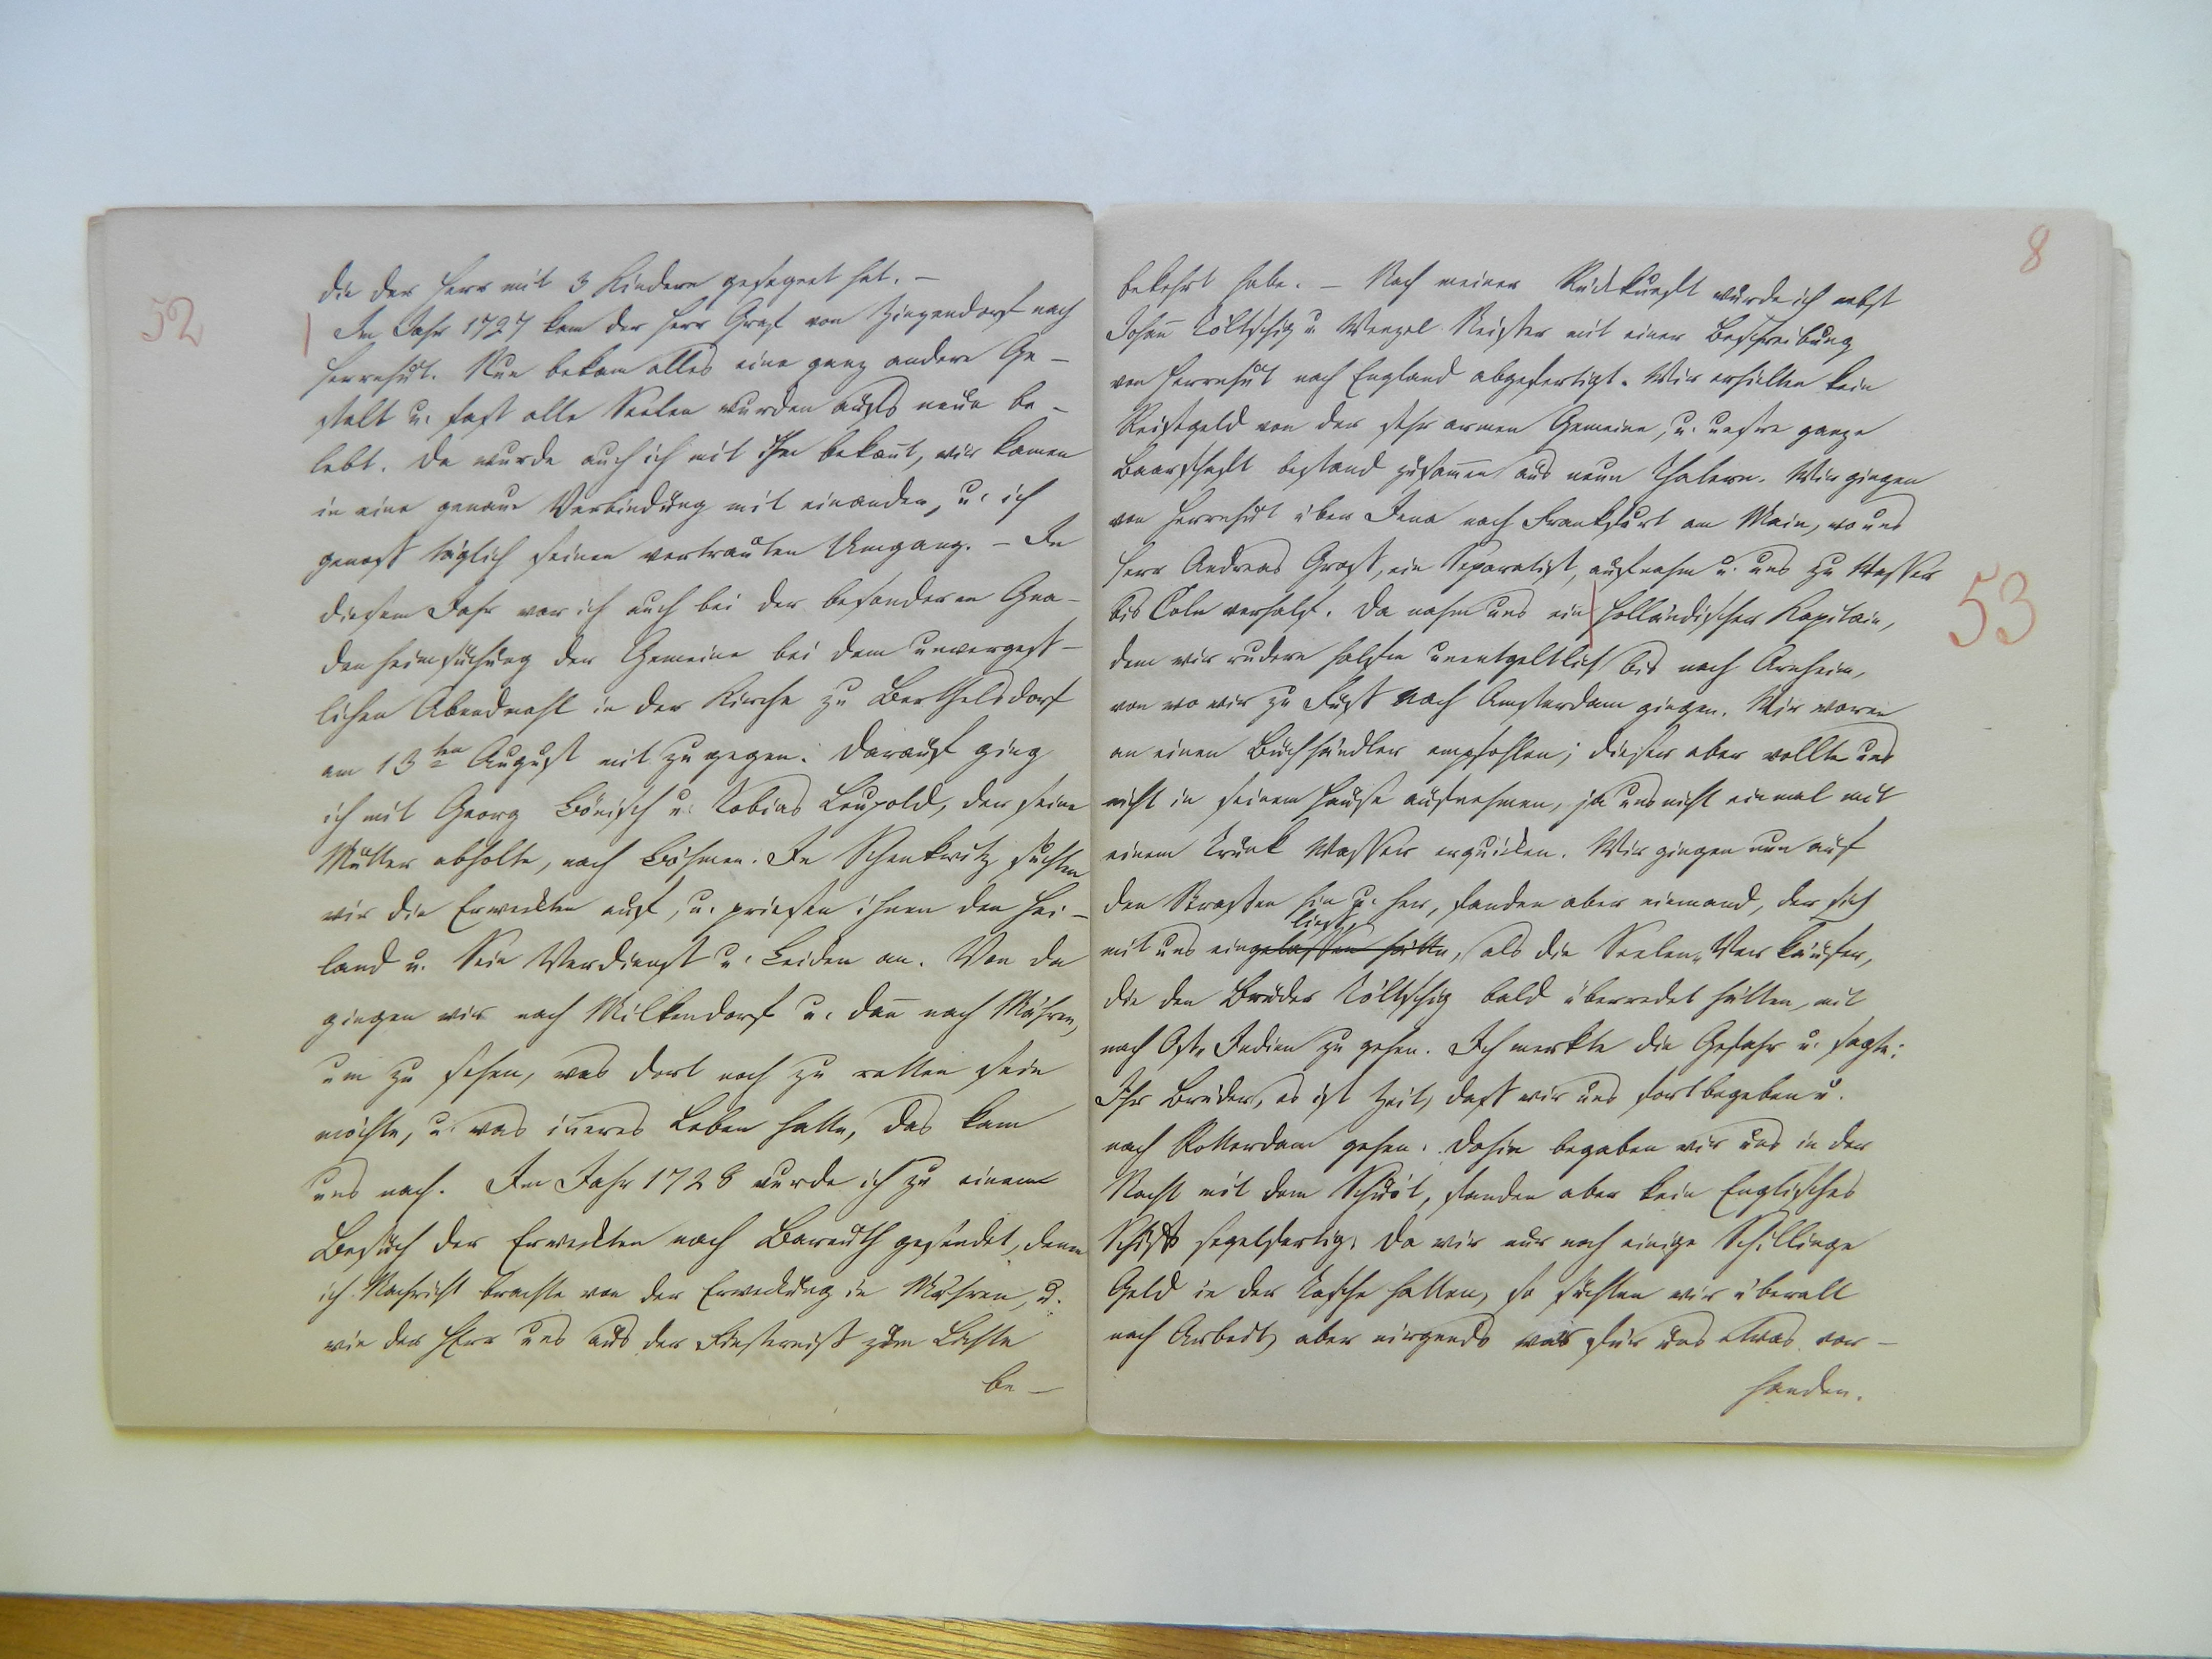 52
die der Herr mit 3 Kindern gesegnet hat. —
Im Jahr 1727 kam der Herr Graf von Zinzendorf nach
Herrnhut. Nun bekam alles eine ganz andere Ge-
stalt u. fast alle Seelen wurden aufs neue be-
lebt. Da wurde auch ich mit Ihm bekant, wir kamen
in eine genaue Verbindung mit einander, u. ich
genoß täglich seinen vertrauten Umgang. — In
diesem Jahr war ich auch bei der besonderen Gna-
denheimsuchung der Gemeine bei dem unvergeß-
lichen Abendmahl in der Kirche zu Berthelsdorf
am 13ten August mit zugegen. Darauf ging
ich mit Georg Böhnisch u. Tobias Leupold, der seine
Mutter abholte, nach Böhmen. In suchten
wir die Erweckten auf, u. priesen ihnen den Hei-
land u. Sein Verdienst u. Leiden an. Von da
gingen wir nach Milkendorf u. dan nach Mähren,
um zu sehen, was dort noch zu retten sein
möchte, u. was inneres Leben hatte, das kam
uns nach. Im Jahr 1728 wurde ich zu einem
Besuch der Erweckten nach Bareuth gesendet, denen
ich Nachricht brachte von der Erweckung in Mähren, u.
wie der Herr uns aus der Finsterniß zum Lichte
be-
8
bekehrt habe. — Nach meiner Rückkunft wurde ich nebst
Johan Töltschig u. Wenzel Neisser mit einer Beschreibung
von Herrnhut nach England abgefertigt. Wir erhielten kein
Reisegeld von der sehr armen Gemeine, u. unsere ganze
Baarschaft bestand zusamen aus neun Thalern. Wir gingen
von Herrnhut über Jena nach Frankfurt am Main, wo uns
Herr Andreas Groß, ein Separatist, aufnahm u. uns zu Wasser
bis Cöln verhalf. Da nahm uns ein holländischer Kapitain,
53
dem wir rudern halfen unentgeltlich bis nach Arnheim,
von wo wir zu Fuß nach Amsterdam gingen. Wir waren
an einen Buchhändler empfohlen; dieser aber wollte uns
nicht in seinem Hause aufnehmen, ja uns nicht einmal mit
einem Trunk Wasser erquicken. Wir gingen nun auf
den Strassen hin u. her, fanden aber niemand, der sich
ließ,
mit uns eingelassen hätte, als die Seelen-Verkäufer,
die den Bruder Töltschig bald überredet hätten, mit
nach Ost-Indien zu gehen. Ich merkte die Gefahr u. sagte:
Ihr Brüder, es ist Zeit, daß wir uns fortbegeben u.
nach Rotterdam gehen. Dahin begaben wir uns in der
Nacht mit dem Schuit, fanden aber kein Englisches
Schiff segelfertig. Da wir nur noch einige Schillinge
Geld in der Tasche hatten, so suchten wir überall
nach Arbeit, aber nirgends war für uns etwas vor-
handen.